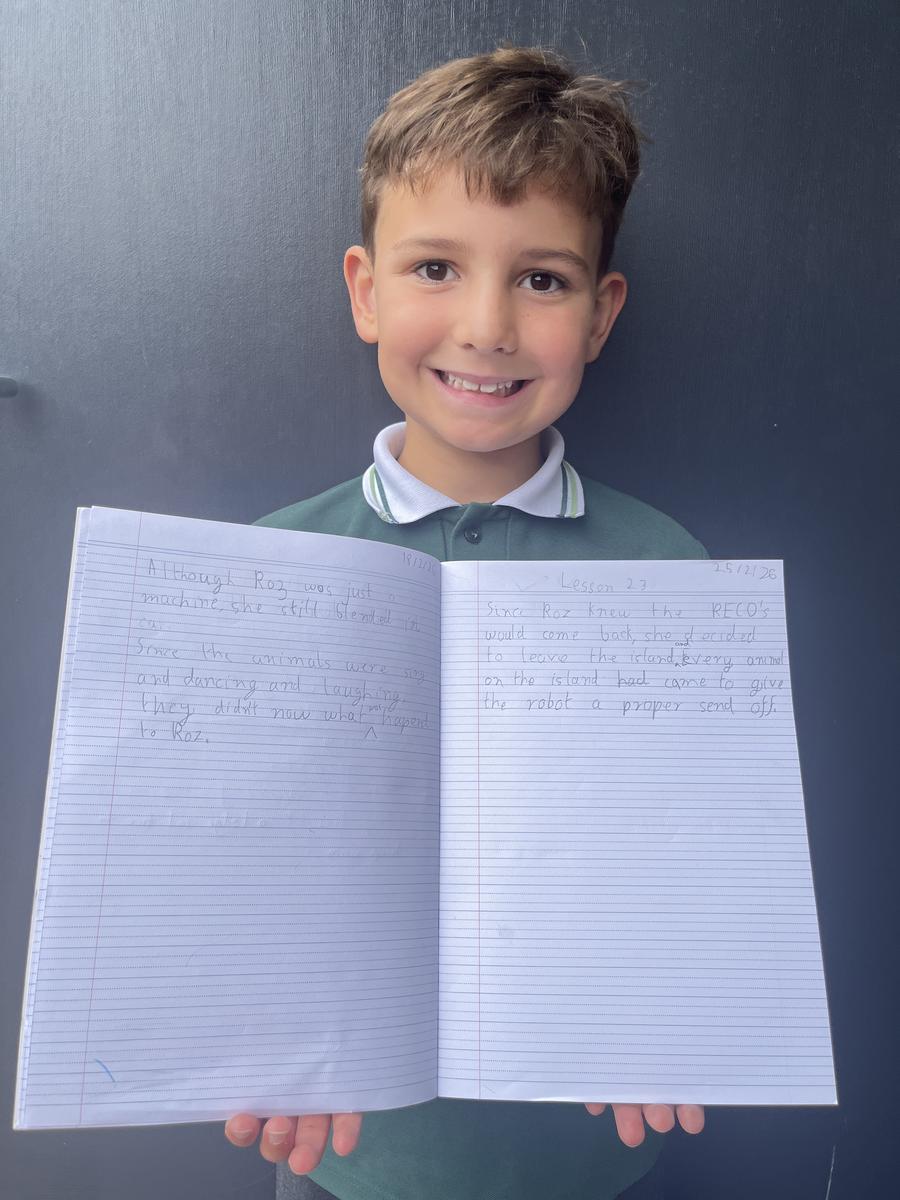 18/2/2
Although Roz was just a
machine, she still blended in
Since the animals were sing
and dancing and laughing,
they didn't now what hapend
to Roz.
25/2/26
Lesson 23
Since Roz knew the RECO's
would come back, she decided
to leave the island, and every animal
on the island had came to give
the robot a proper send off.